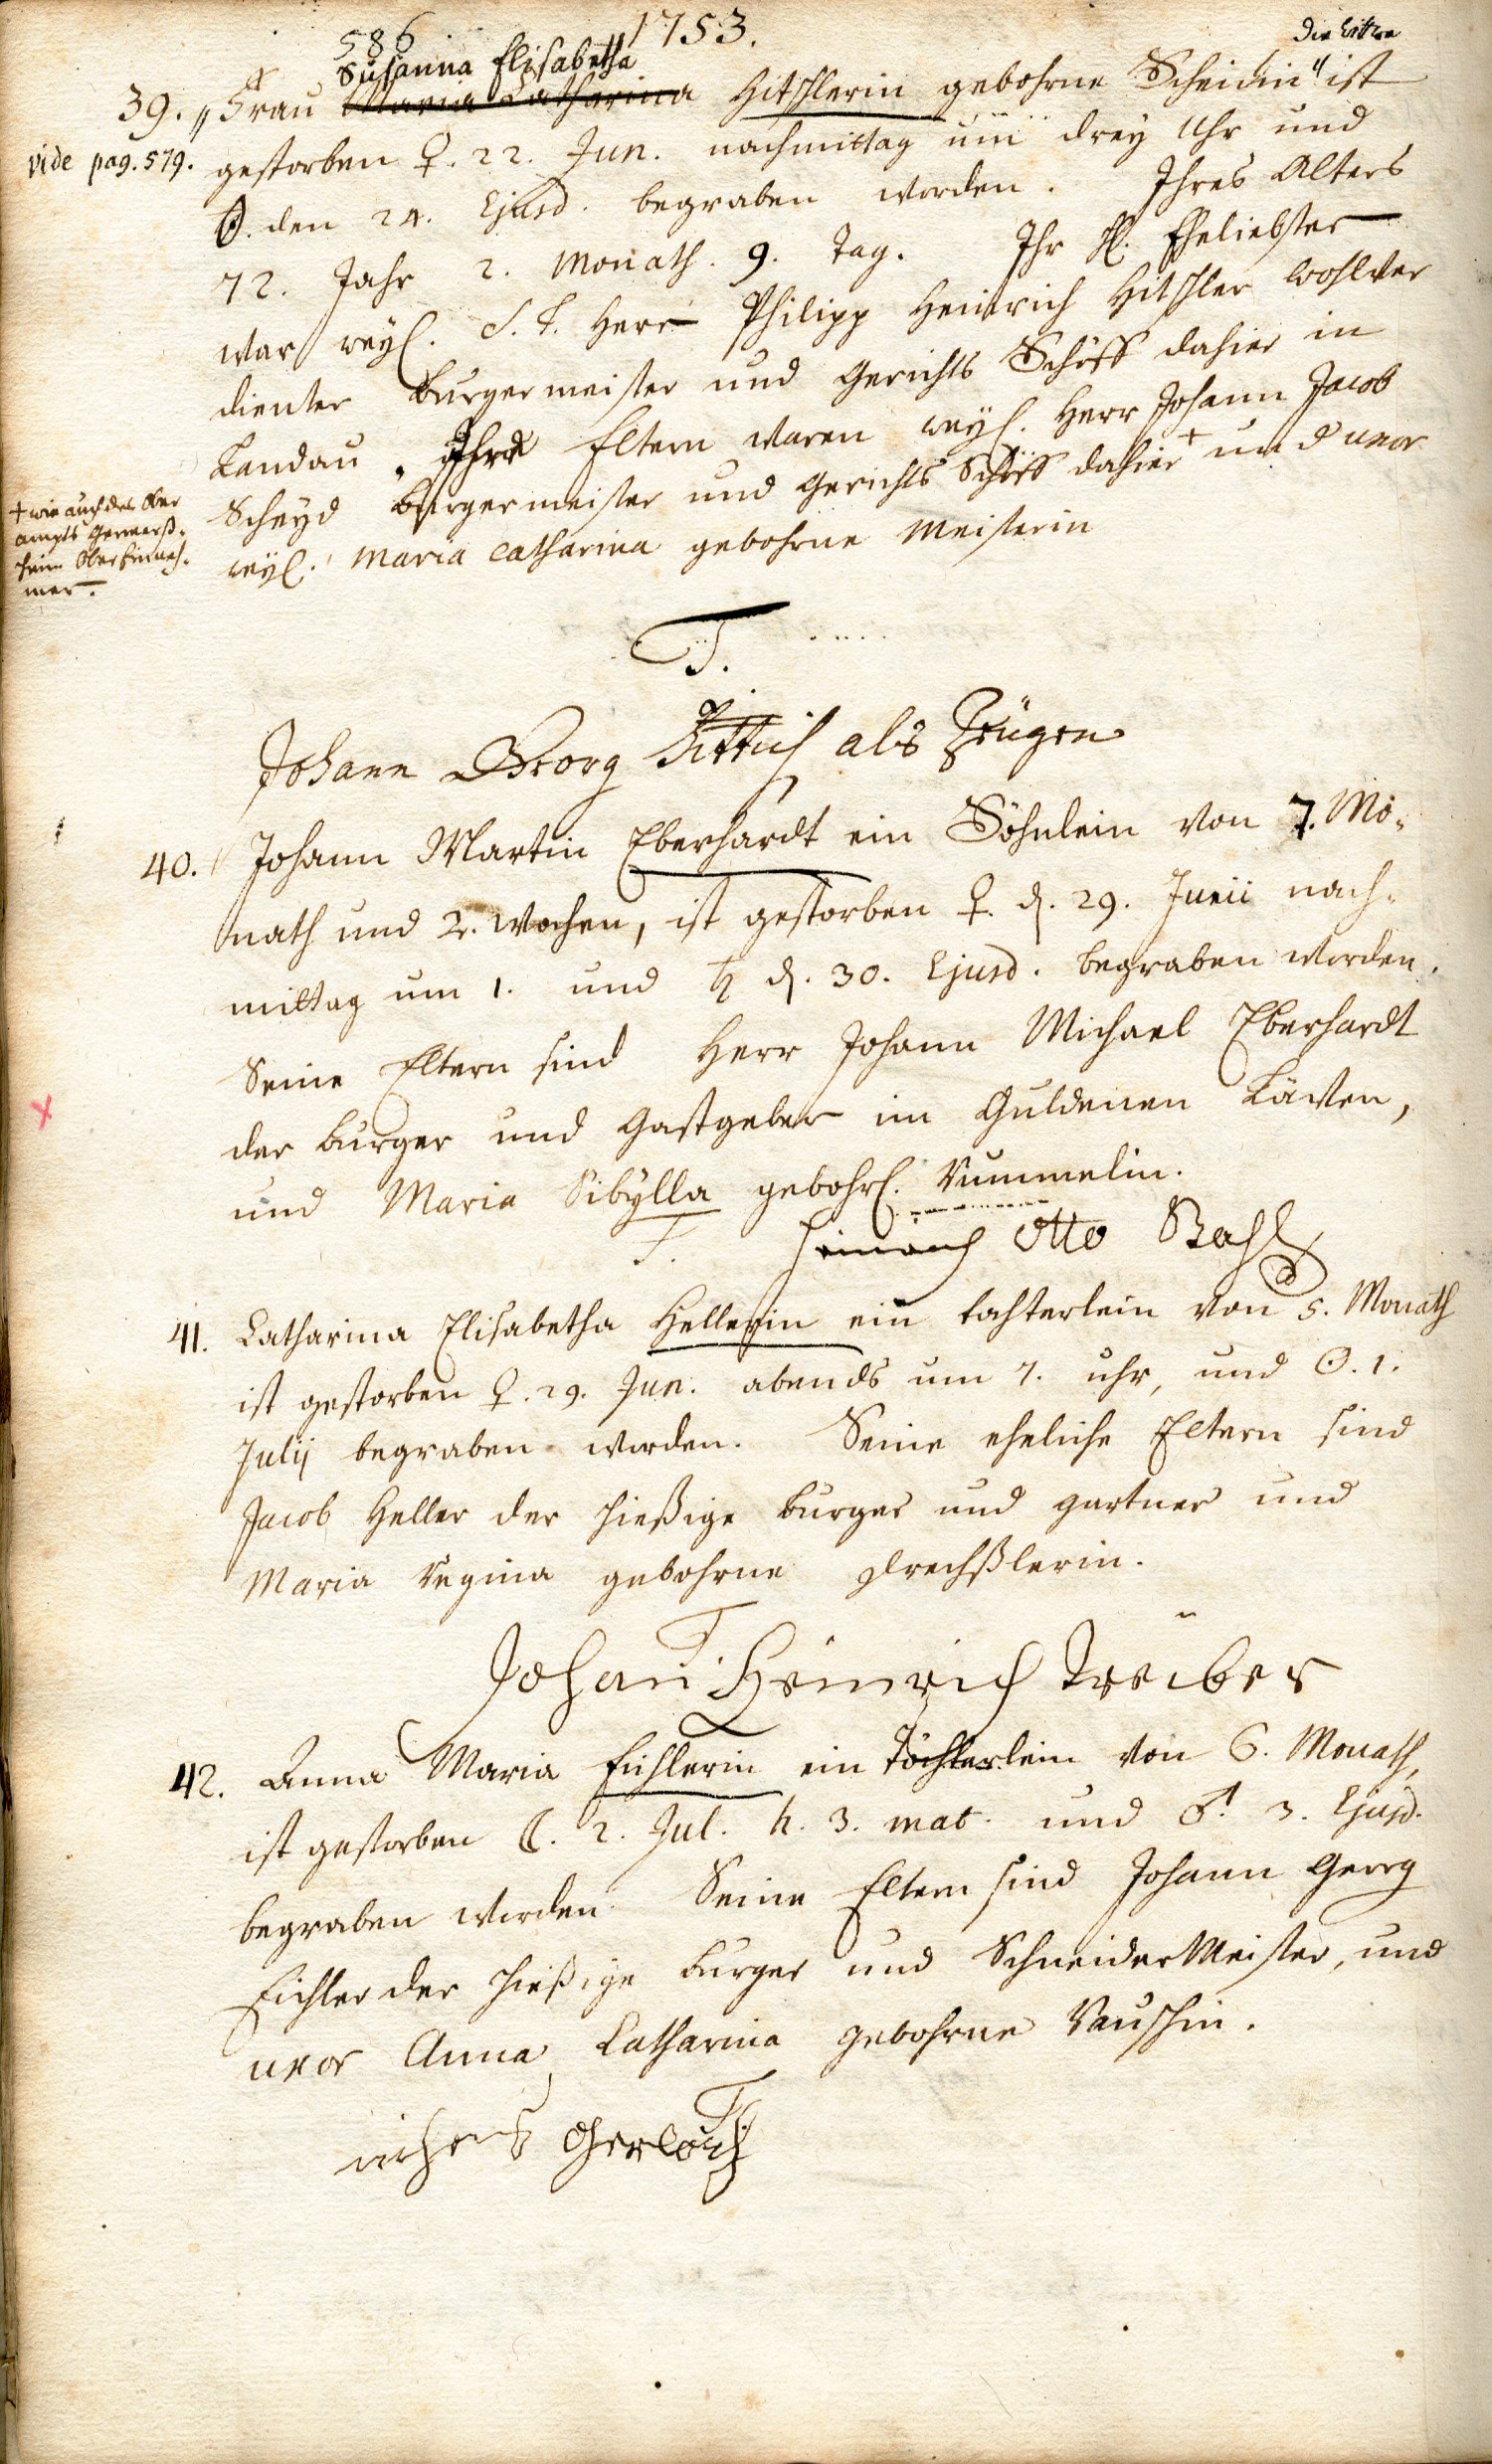 586
1753.
Susanna Elisabetha
die Wittwe
39. „Frau Maria Catharina Hitschlerin gebohrne Scheidin" ist
vide pag. 579. gestorben ♀. 22. Jun. nachmittag um drey Uhr und
☉. den 24. Ejusd. begraben worden. Ihres Alters
72. Jahr 2. Monath. 9. Tag. Ihr sl. Eheliebster
war weyl. S. T. Herr Philipp Heinrich Hitschler wohlver
dienter Burgermeister und Gerichts Schöff dahier in
Landau. Ihre Eltern waren weyl. Herr Johann Jacob
Scheyd Burgermeister und Gerichts Schöff dahier + und uxor
weyl. Maria Catharina gebohrne Meisterin
+ wie auch des Ober
ampts Germerß-
heim Ober Einneh-
mer.
T.
Johann Georg Sittich als Zeugen
40. Johann Martin Eberhardt ein Söhnlein von 7. Mo-
nath und 2. Wochen, ist gestorben ♀. d. 29. Junii nach-
mittag um 1. und ♄ d. 30. Ejusd. begraben worden.
Seine Eltern sind Herr Johann Michael Eberhardt
der Burger und Gastgeber im Guldenen Läwen,
und Maria Sibylla gebohrl. Rummelin.
T. Heinrich Otto Bahl
41. Catharina Elisabetha Hellerin ein tochterlein von 5. Monath
ist gestorben ♀. 29. Jun. abends um 7. uhr, und ☉. 1.
Julij begraben worden. Seine eheliche Eltern sind
Jacob Heller der hießige Burger und gartner und
Maria Regina gebohrne Drechßlerin.
T.
Johann Heinrich Treiber
42. Anna Maria Eichlerin ein Töchterlein von 6. Monath,
ist gestorben ☾. 2. Jul. h. 3. mat. und ♂. 3. Ejusd.
begraben worden. Seine Eltern sind Johann Georg
Eichler der hießige Burger und SchneiderMeister, und
uxor Anna Catharina gebohrne Rauschin.
T.
Gerloch